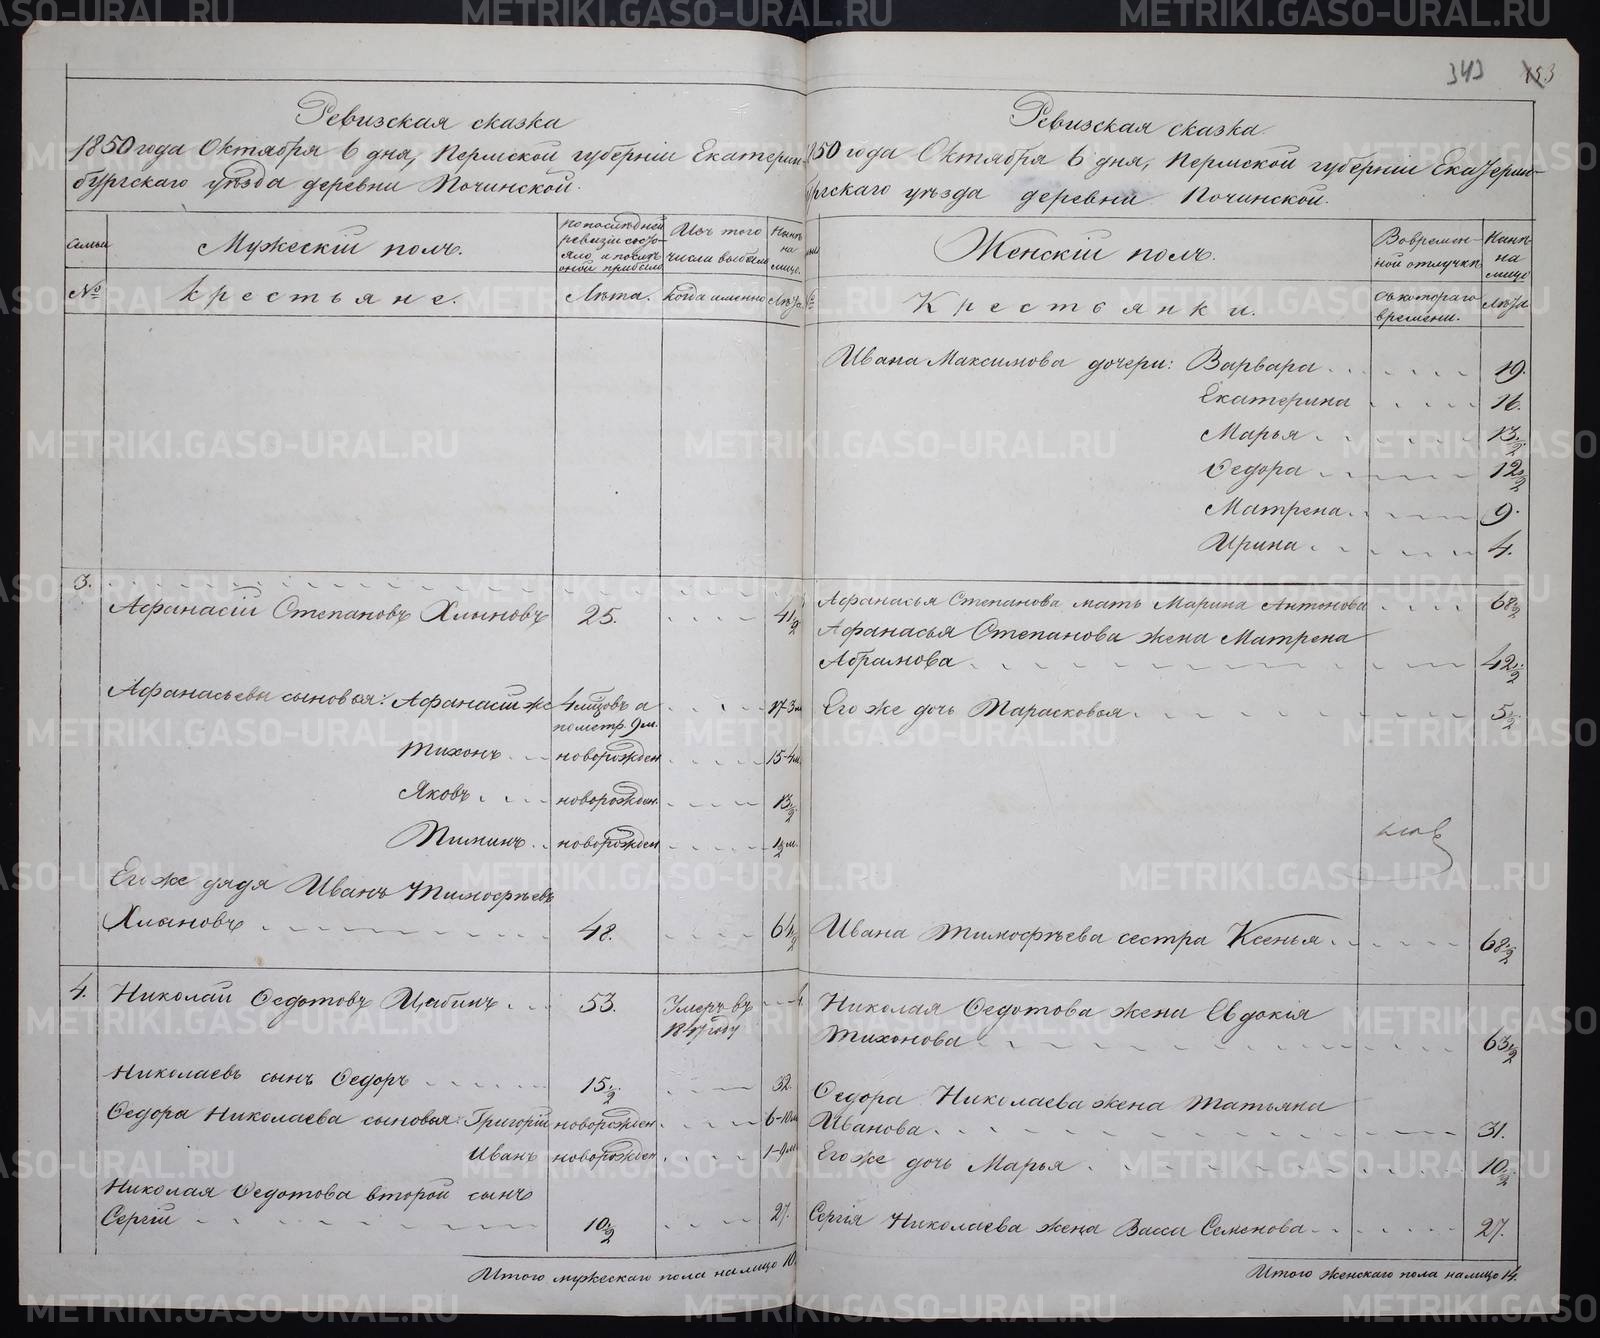 343 153
Ревизская сказка
1850 года Октября 6 дня, Пермской губерніи Екатерин-
бургскаго уѣзда деревни Починской.
Семьи
Мужескій полъ.
По послѣдней ревизіи состо-
яло и послѣ оной прибыло
Изъ того числа выбыло
Нынѣ на лицо.
№
Крестьяне.
Лѣта.
Когда именно
Лѣта.
3.
Афанасій Степановъ Хлыновъ 25. 41½
Афанасьевы сыновья: Афанасій же 4 мѣсцовъ а 17-3м
по метр. 9 м.
Тихонъ новорожден 15-4м
Яковъ новорожден. 13½
Пиминъ новорожден ½ м.
Его же дядя Иванъ Тимофѣевъ
Хлыновъ 48. 64½
4. Николай Федотовъ Цыбинъ 53. Умеръ въ
1847 году
Николаевъ сынъ Федоръ 15½ 32.
Федора Николаева сыновья: Григорій новорожден. 6-10м
Иванъ новорожден 1-9м
Николая Федотова второй сынъ
Сергій 10½ 27.
Итого мужескаго пола на лицо 10.
Ревизская сказка.
1850 года Октября 6 дня, Пермской губерніи Екатерин-
бургскаго уѣзда деревни Починской.
Женскій полъ.
Во времен-
ной отлучкѣ
Нынѣ на лицо
Крестьянки.
Съ котораго
времени.
Лѣта
Ивана Максимова дочери: Варвара 19.
Екатерина 16.
Марья 13½
Федора 12½
Матрена 9.
Ирина 4.
Афанасья Степанова мать Марина Антонова 68½
Афанасья Степанова жена Матрена
Абрамова 42½
Его же дочь Парасковья 5½
Ивана Тимофѣева сестра Ксенья 68½
Николая Федотова жена Евдокія
Тихонова 63½
Федора Николаева жена Татьяна
Иванова 31.
Его же дочь Марья 10½
Сергія Николаева жена Васса Семенова 27.
Итого женскаго пола на лицо 14.
METRIKI.GASO-URAL.RU